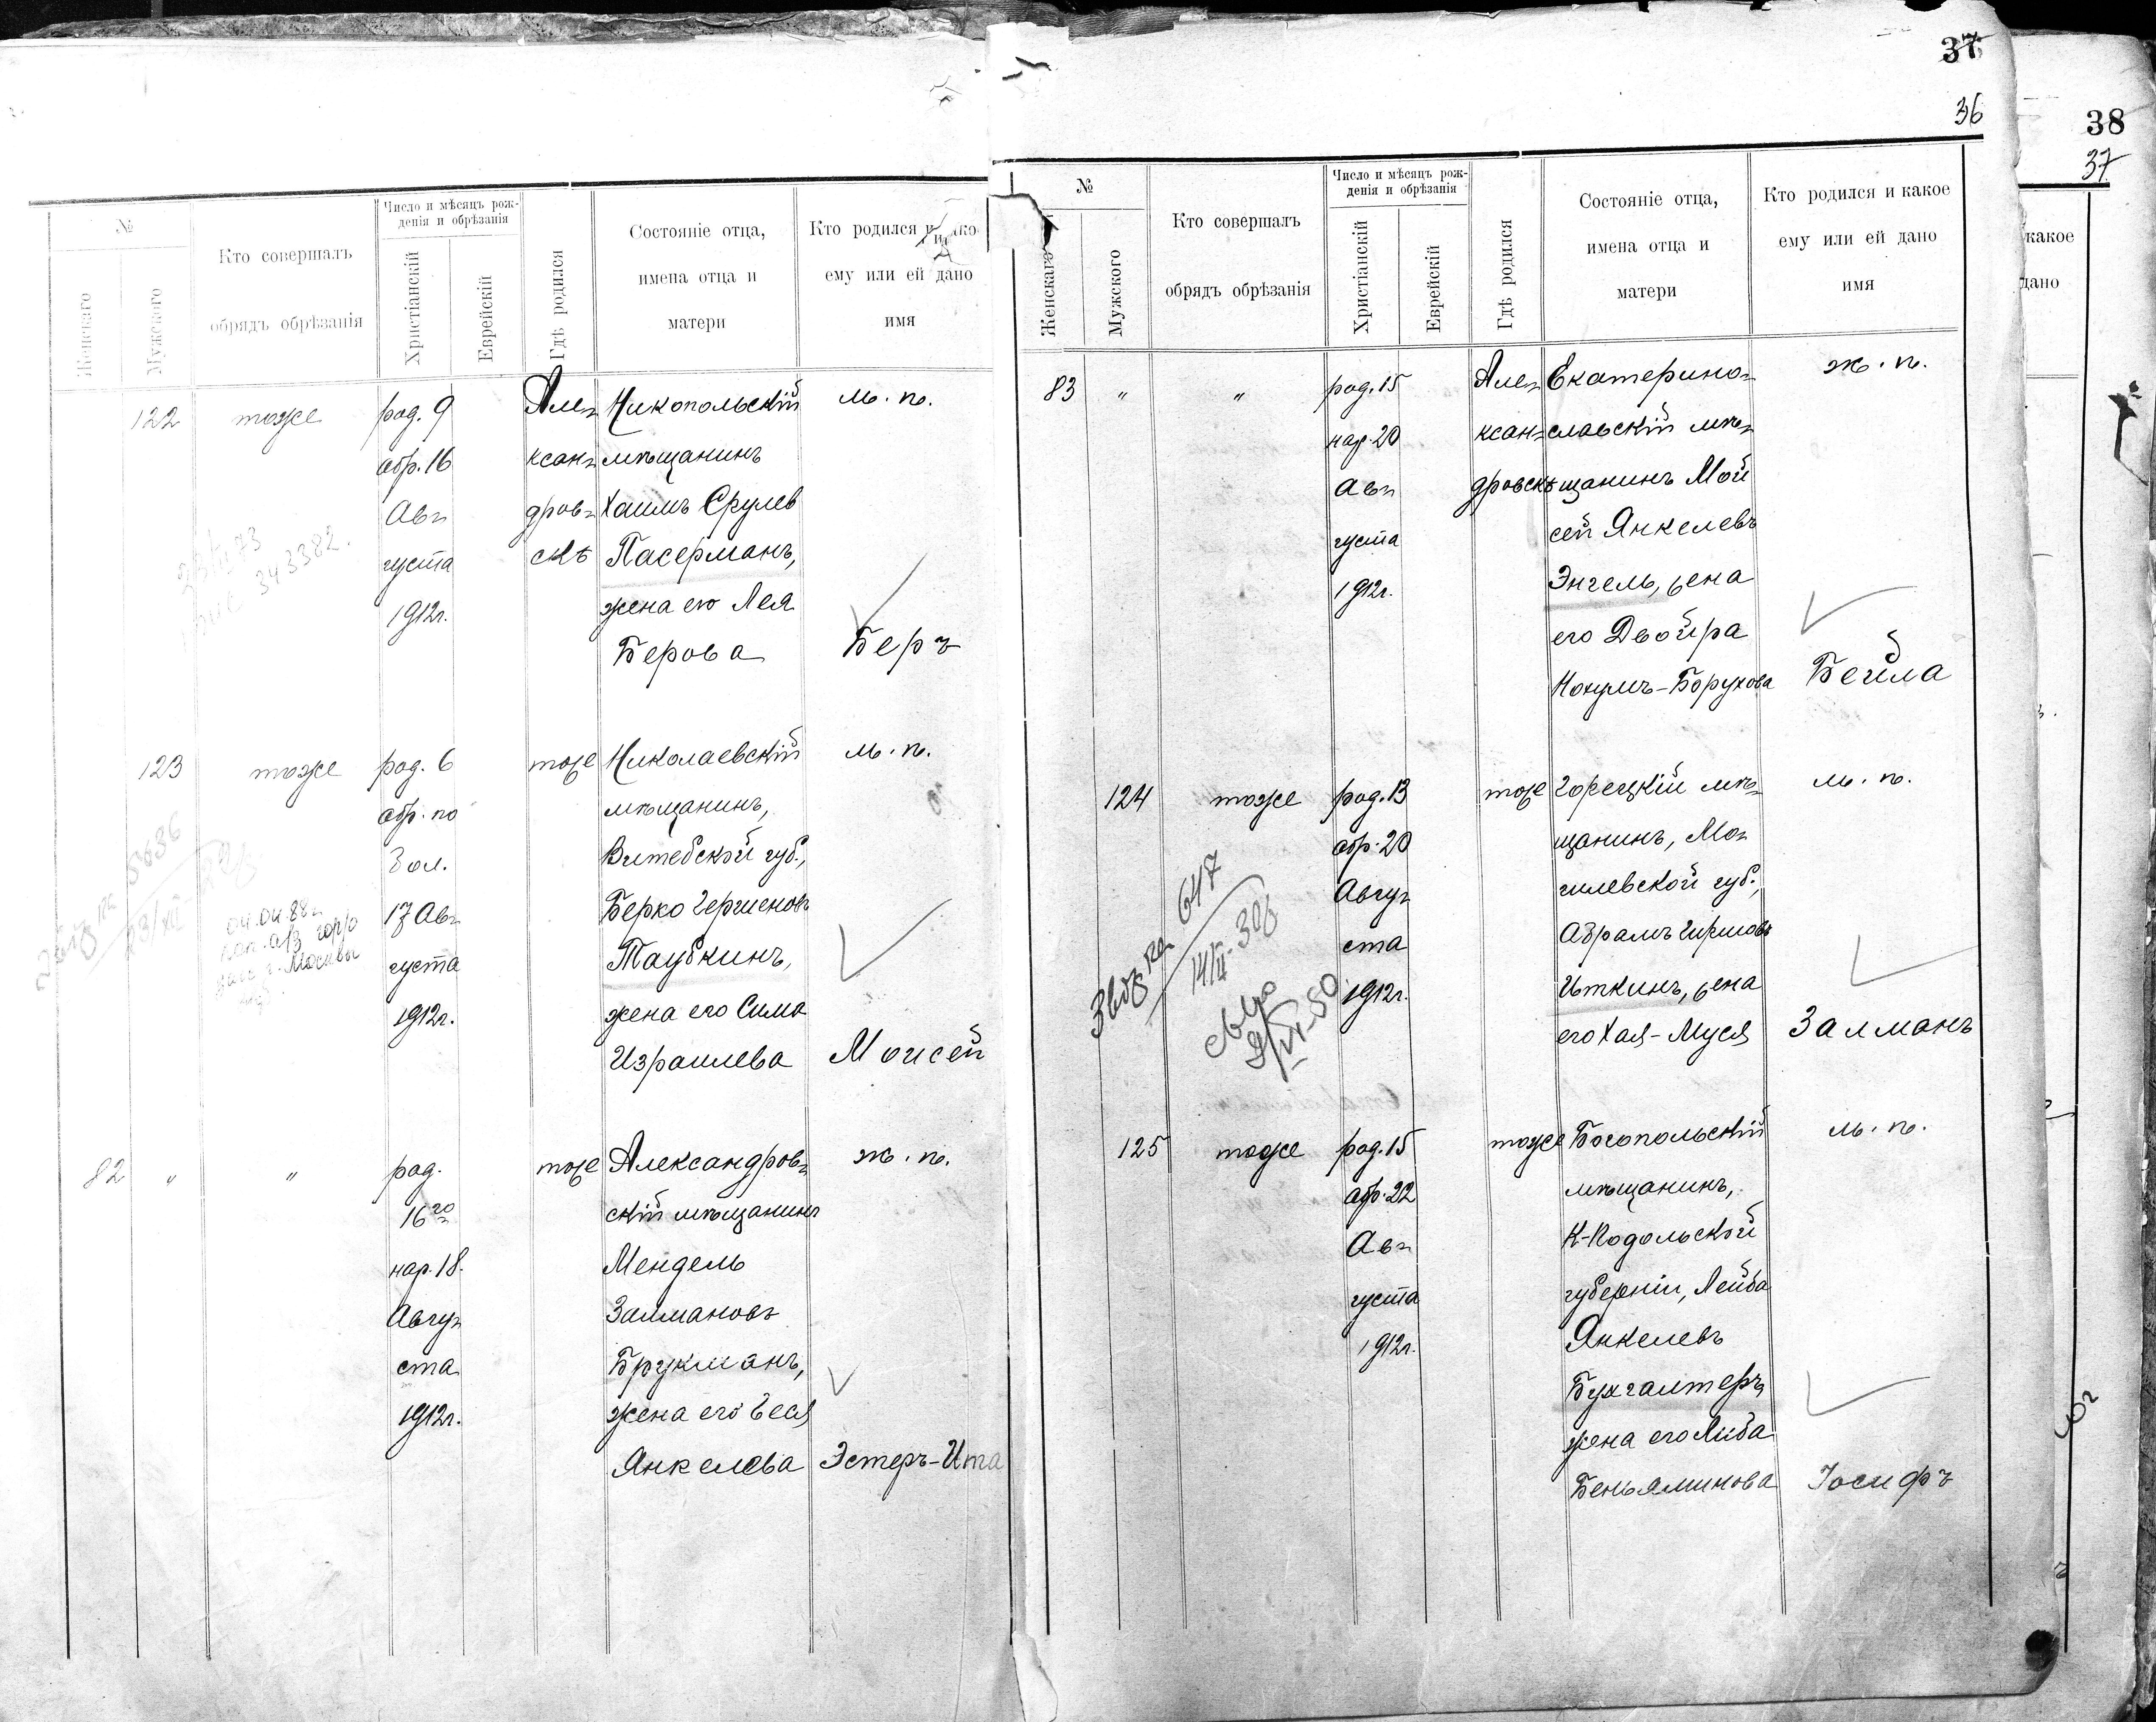 №
Женскаго
Мужского
Кто совершалъ
обрядъ обрѣзанія
Число и мѣсяцъ рож-
денія и обрѣзанія
Христіанскій
Еврейскій
Гдѣ родился
Состояніе отца,
имена отца и
матери
Кто родился и
ему или ей дано
имя
122 тоже род. 9 Але- Никопольскій м. п.
обр. 16 ксан- мѣщанинъ
Ав- дров- Хаимъ Срулев
густа скѣ Пасерманъ,
1912г. жена его Лея
Берова Беръ
343382.
123 тоже род. 6 тоже Николаевскій м. п.
обр. по мѣщанинъ,
бол. Витебской губ.,
17 Ав- Берко Гершеновъ
густа Таубкинъ,
1912г. жена его Сима
Израилева Моисей
5636
04.04.88г
г. Москвы
82 " " род. тоже Александров- ж. п.
16го скій мѣщанинъ
нар. 18. Мендель
Авгу- Залмановъ
ста Брукманъ,
1912г. жена его Геся
Янкелева Эстеръ-Ита
37
36
№
Женскаго
Мужского
Кто совершалъ
обрядъ обрѣзанія
Число и мѣсяцъ рож-
денія и обрѣзанія
Христіанскій
Еврейскій
Гдѣ родился
Состояніе отца,
имена отца и
матери
Кто родился и какое
ему или ей дано
имя
83 " " род. 15 Але- Екатерино- ж. п.
нар. 20 ксан- славскій мѣ-
Ав- дровскѣ щанинъ Мой
густа сей Янкелевъ
1912г. Энгель, жена
его Двойра
Нохумъ-Борухова Бейла
124 тоже род. 13 тоже Горецкій мѣ- м. п.
обр. 20 щанинъ, Мо-
Авгу- гилевской губ.,
ста Абрамъ Гиршовъ
1912г. Иткинъ, жена
его Хая-Муся Залманъ
647
125 тоже род. 15 тоже Богопольскій м. п.
обр. 22 мѣщанинъ,
Ав- К-Подольской
густа губерніи, Лейба
1912г. Янкелевъ
Бухгалтеръ,
жена его Либа
Беньяминова Іосифъ
38
37
какое
дано